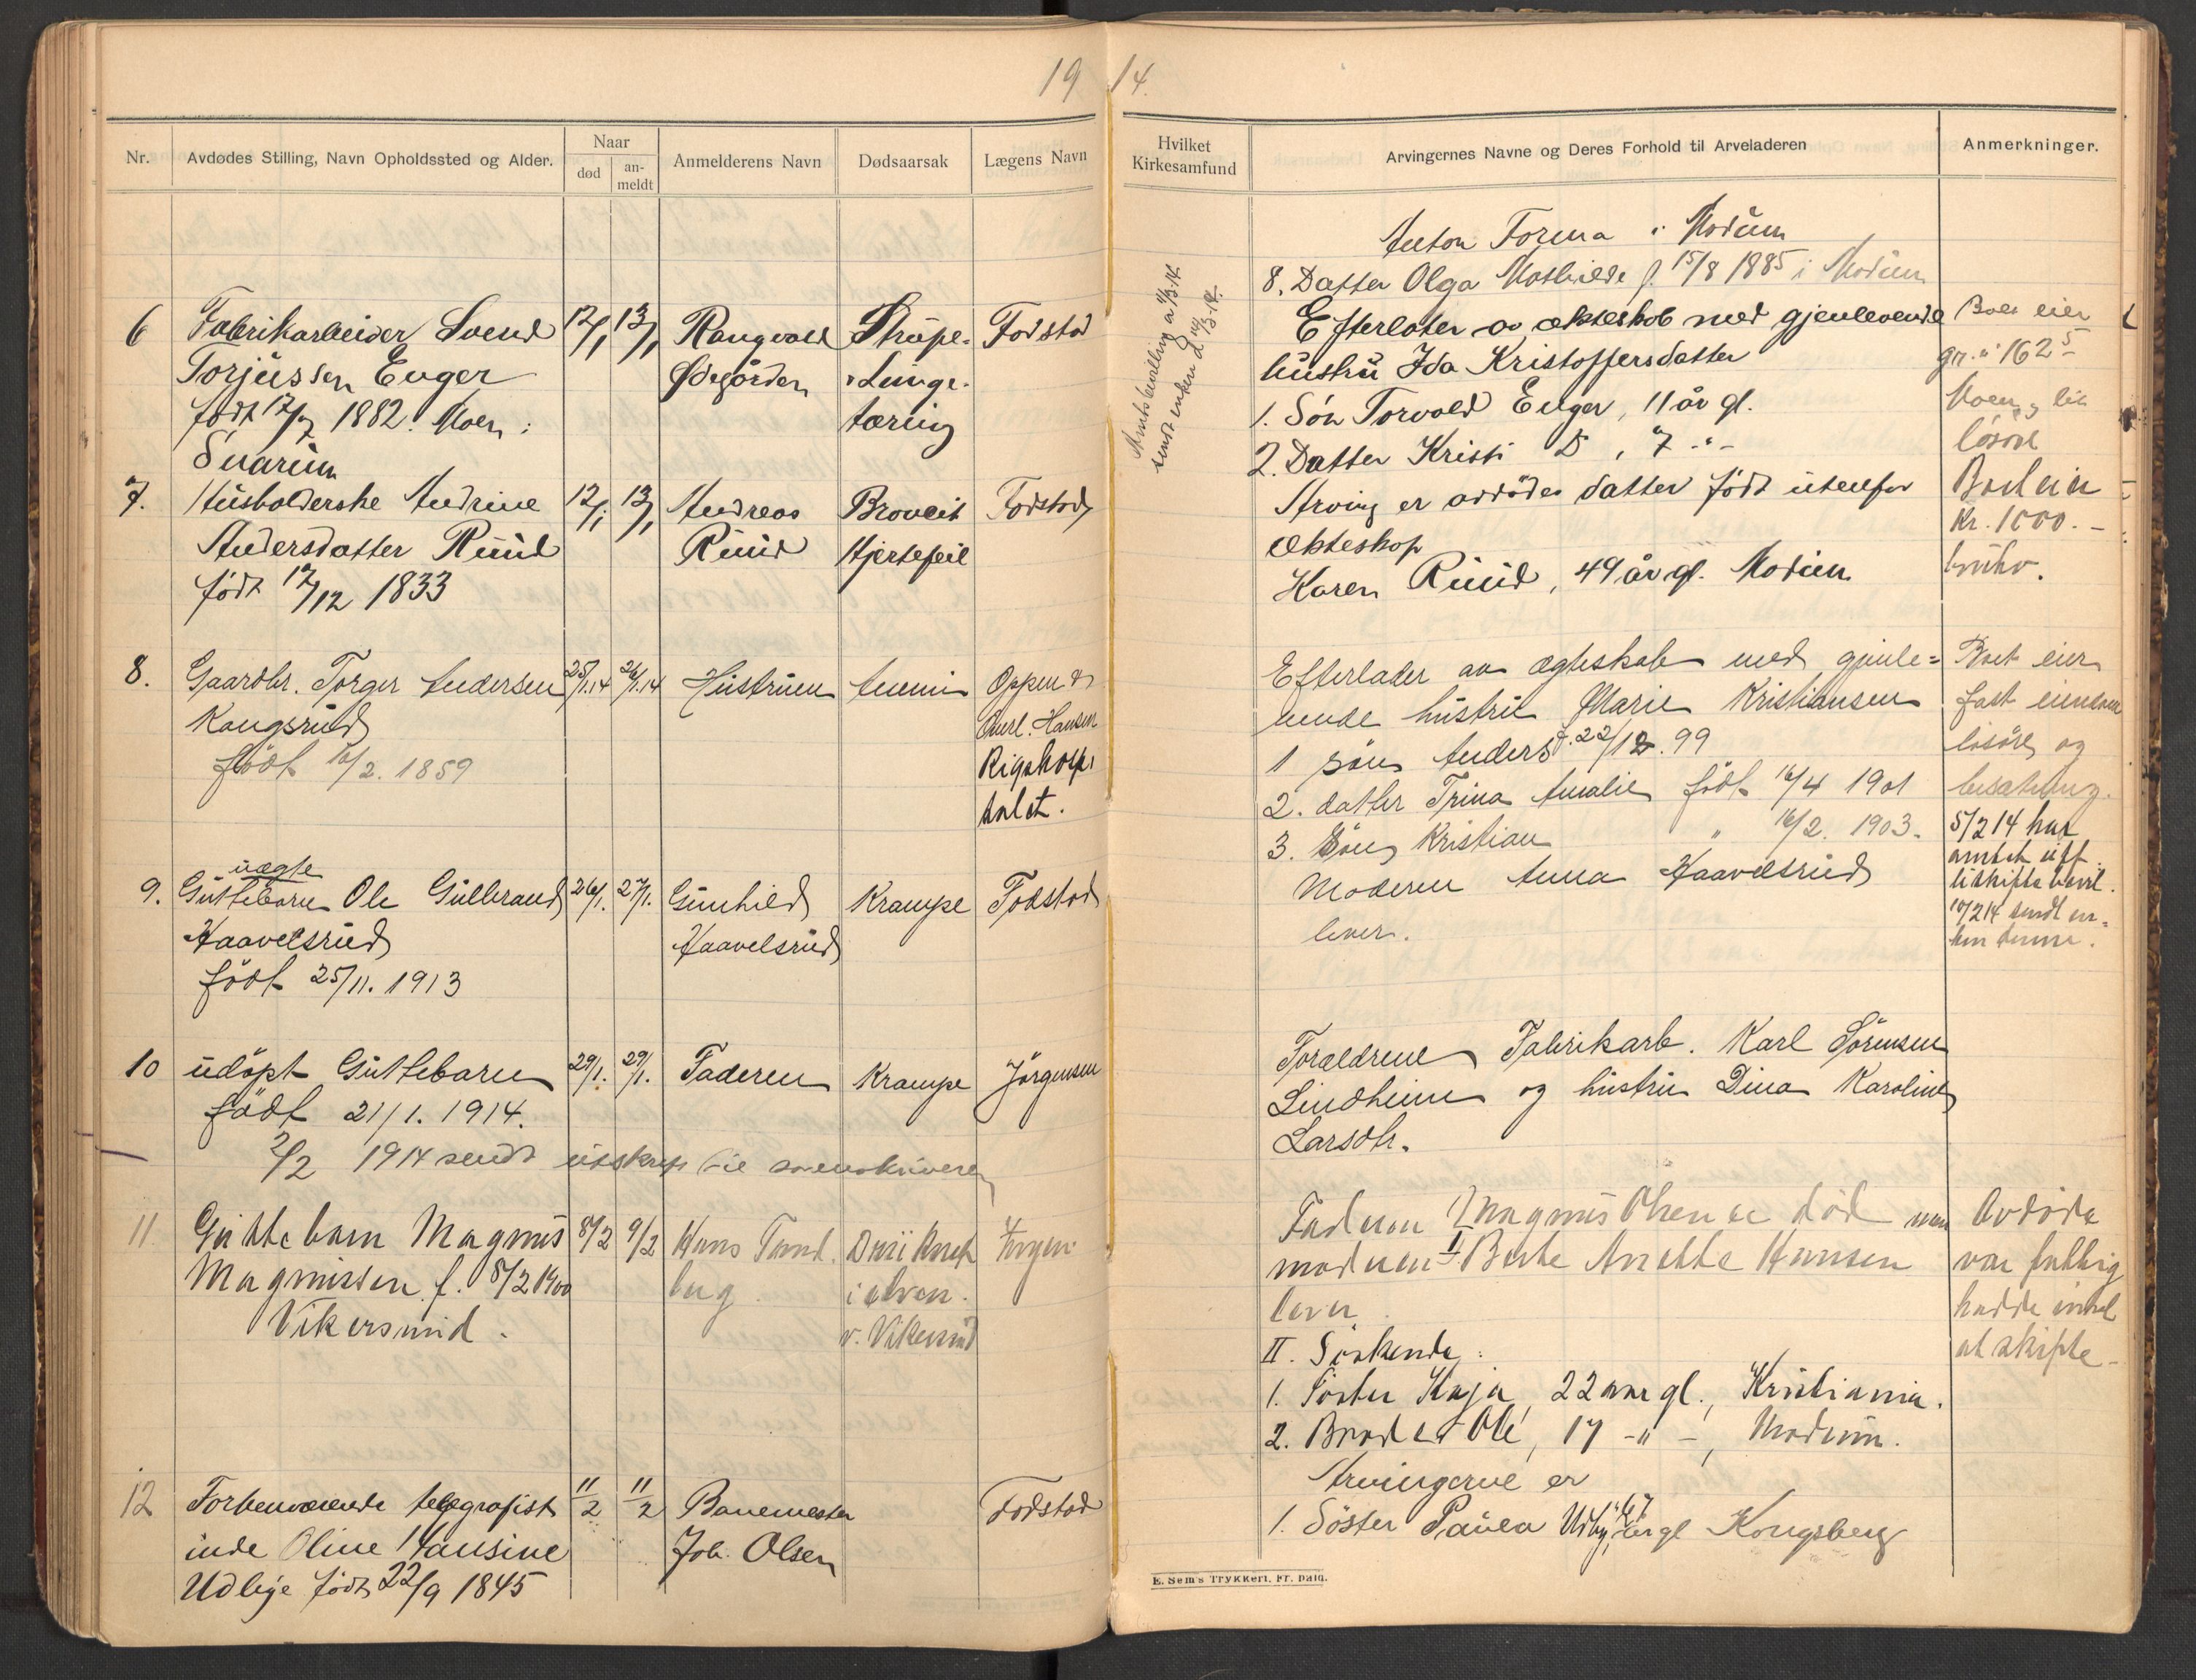 19 14.
Nr.
Avdødes Stilling, Navn Opholdssted og Alder.
Naar
død
an-
meldt
Anmelderens Navn
Dødsaarsak
Lægens Navn
Hvilket
Kirkesamfund
Arvingernes Navne og Deres Forhold til Arveladeren
Anmerkninger.
Anton Forma i Modum
8. Datter Olga Mathilde f. 15/8 1885 i Modum
6 Fabrikarbeider Svend 12/1 13/1 Rangvald Strupe- Fodstad
Torjussen Enger Ødegården Lunge-
født 12/7 1882. Moen i tæring
Snarum
Efterlater av ekteskab med gjenlevende
hustru Ida Kristoffersdatter
1. Søn Torvald Enger, 11 år gl.
2. Datter Kristi D, 7 -"-
Boet eier
Moen og lit
løsøre
7. Husholderske Andrine 12/1 13/1 Andreas Broveit Fodstad
Andersdatter Ruud Ruud Hjertefeil
født 12/12 1833
Arving er avdødes datter født utenfor
ekteskap
Karen Ruud, 49 år gl. Modum
Kr. 1000.-
8. Gaardbr. Torger Andersen 25/1.14 26/1.14 Hustruen Anemi Oppen &
Kongsrud Hansen
født 10/2. 1859 Rigshospi
talet.
Efterlader av ægteskab med gjenle=
vende hustru Marie Kristiansen
1 søn Anders f. 22/12.99
2. datter Trina Amalie født 16/4 1901
3. Søn Kristian " 16/2. 1903.
Moderen Anna Haavelsrud
lever.
Boet eier
fast eiendom
løsøre og
besætning.
5/2 14 har
amtet utf.
uægte
9. Guttebarn Ole Gulbrand 26/1. 27/1. Gunhild Krampe Fodstad
Haavelsrud Haavelsrud
født 25/11. 1913
10 udöpt Guttebarn 29/1. 29/1. Faderen Krampe Jörgensen
født 21/1. 1914.
2/2 1914 sendt utskrift til sorenskriveren
Forældrene Fabrikarb. Karl Sørensen
Lindheim og hustru Dina Karoline
Larsdtr.
11. Guttebarn Magnus 8/2 9/2 Hans Tand- Druknet Ingen
Magnussen f. 8/2 1900 berg i elven
Vikersund. v. Vikersund
Faderen Magnus Olsen er død men
moderen I Berte Anette Hansen
lever.
II. Søskende:
1. Søster Kaja, 22 aar gl., Kristiania.
2. Broder Ole, 17 -"-, Modum.
Avdøde
var fattig
hadde intet
at skifte -
12 Forhenværende telegrafist 11/2 11/2 Banemester Fodstad
inde Oline Hansine Joh. Olsen
Udbye født 22/9 1845
Arvingerne er
1. Søster Paula Udby, år gl Kongsberg
E. Sem's Trykkeri, Fr. hald.